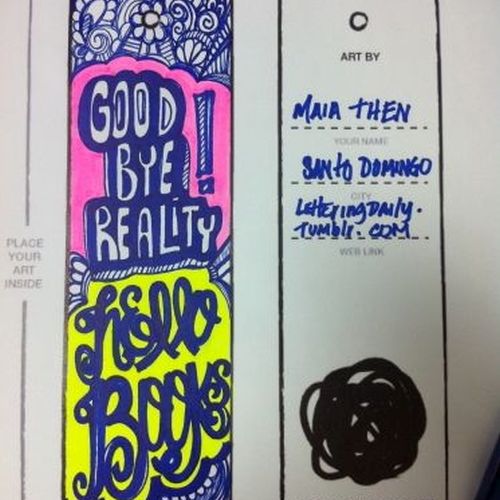 PLACE
YOUR
ART
INSIDE
GOOD
BYE
REALITY!
hello
Books
ART BY
MAIA THEN
YOUR NAME
SANTO DOMINGO
CITY
LETTERINGDAILY.
TUMBLR.COM
WEB LINK